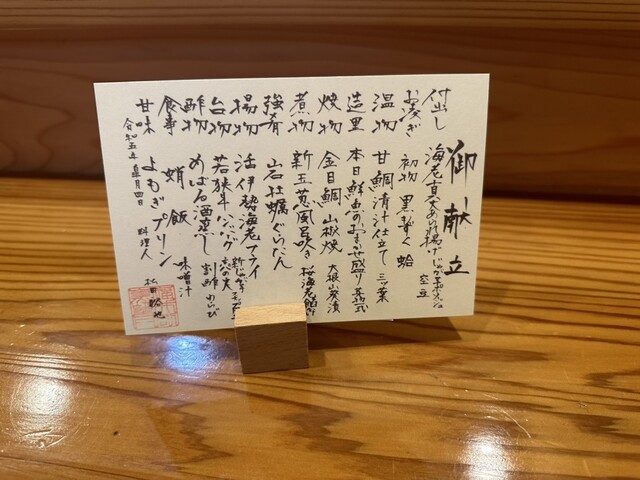 御献立
付出し 海老真丈あられ揚げ
空豆
お凌ぎ 初物 黒もずく 蛤
温物 甘鯛清汁仕立て 三ッ葉
造里 本日鮮魚のおまかせ盛り
焼物 金目鯛 山椒焼 大根山葵漬
煮物 新玉葱風呂吹き 桜海老餡
強肴 岩牡蠣ぐらたん
揚物 活伊勢海老フライ
台物 若狭牛ハンバーグ
酢物 めばる酒蒸し 割酢 わらび
食事 蛸飯 味噌汁
甘味 よもぎプリン
令和五年皐月四日
料理人